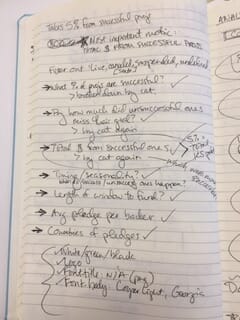 Takes 5% from successful proj
Most important metric:
TOTAL $ FROM SUCCESSFUL PROJS
Filter out: live, canceled, suspended, undefined
What % of projs are successful?
> broken down by cat.
By how much did unsuccessful ones
miss their goal?
> by cat again
Total $ from successful ones
> by cat again
5%
Total
Timing / seasonality?
Length of window to fund?
Avg pledge per backer
Countries of pledges
White/green/black
Logo
Font title: N/A (png)
Font body: Light, Georgia
ANAL